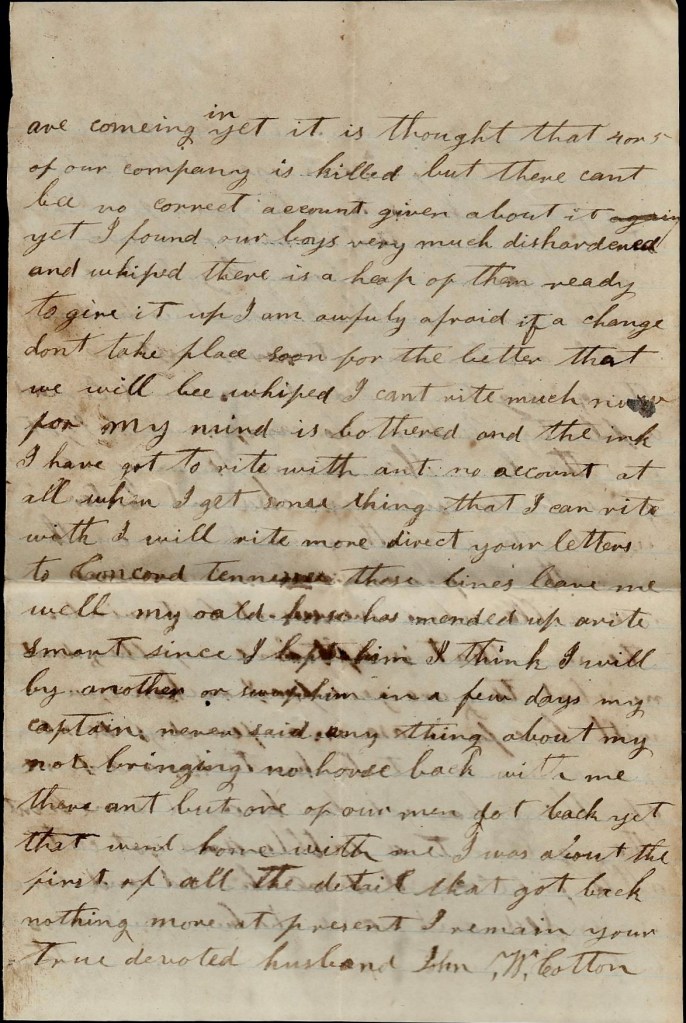 are comeing in yet it is thought that 4 or 5
of our company is killed but there cant
bee no correct account given about it again
yet I found our boys very much dishardened
and whiped there is a heap of them ready
to give it up I am awfuly afraid if a change
dont take place soon for the better that
we will bee whiped I cant rite much now
for my mind is bothered and the ink
I have got to rite with ant no account at
all when I get some thing that I can rite
with I will rite more direct your letters
to Concord tennessee these lines leave me
well my oald horse has mended up arite
smart since I left him I think I will
by another or swap him in a few days my
captain never said any thing about my
not bringing no horse back with me
there ant but one of our men got back yet
that wend home with me I was about the
first of all the detail that got back
nothing more at present I remain your
true devoted husband John W. Cotton